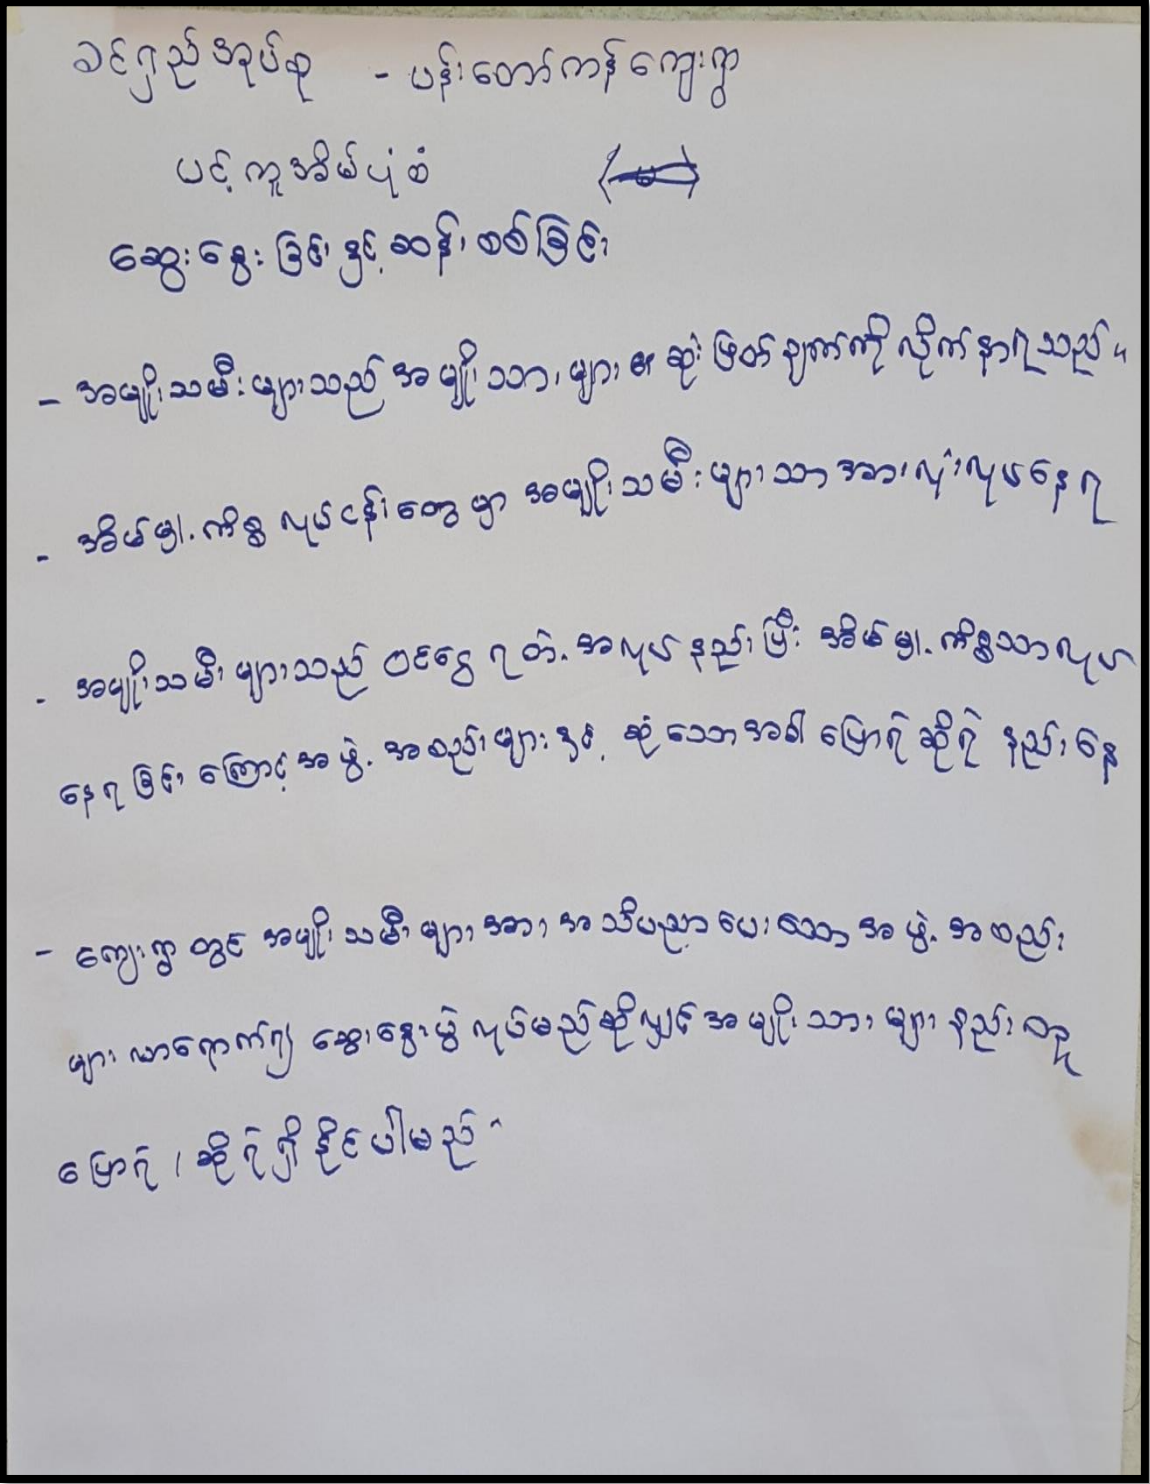 ခင်ရှည်အုပ်စု - ပန်းတော်ကန်ကျေးရွာ
ပင့်ကူအိမ်ပုံစံ
ဆွေးနွေးခြင်းနှင့်ဆန်းစစ်ခြင်း
- အမျိုးသမီးများသည် အမျိုးသားများ၏ဆုံးဖြတ်ချက်ကိုလိုက်နာရသည်။
- အိမ်မှု့ကိစ္စလုပ်ငန်းတွေမှာ အမျိုးသမီးများသာအားလုံးလုပ်နေရ
- အမျိုးသမီးများသည် ဝင်ငွေရတဲ့အလုပ်နည်းပြီး အိမ်မှု့ကိစ္စသာလုပ်
နေရခြင်းကြောင့်အဖွဲ့အစည်းများနှင့် ဆုံသောအခါ ပြောရဲဆိုရဲ နည်းနေ
- ကျေးရွာတွင် အမျိုးသမီးများအား အသိပညာပေးသောအဖွဲ့အစည်း
များလာရောက်၍ ဆွေးနွေးပွဲလုပ်မည်ဆိုလျှင်အမျိုးသားများနည်းတူ
ပြောရဲ၊ဆိုရဲရှိနိုင်ပါမည်။